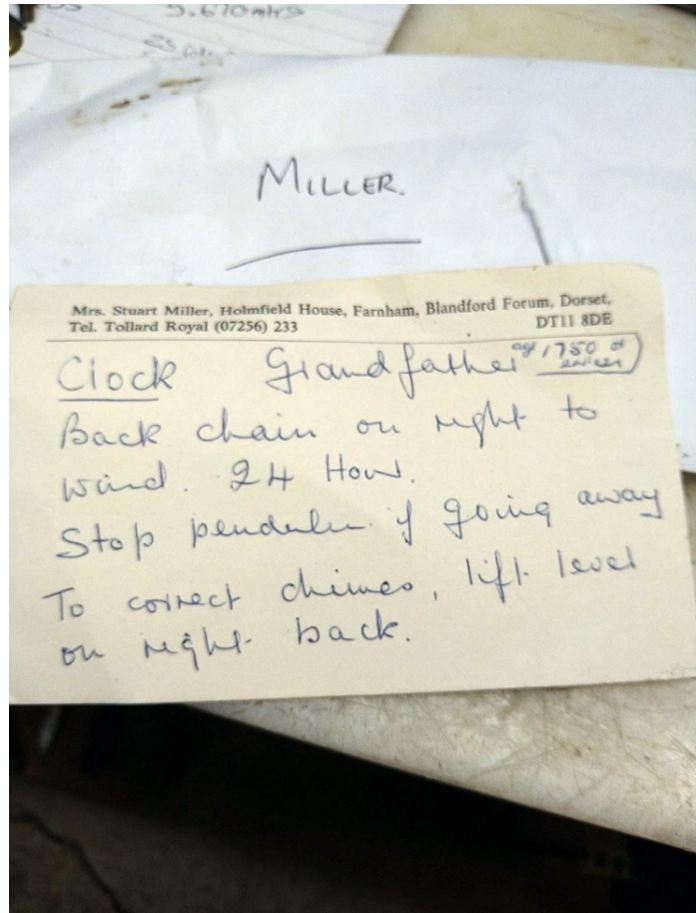 5.670 mtrs
MILLER.
Mrs. Stuart Miller, Holmfield House, Farnham, Blandford Forum, Dorset,
Tel. Tollard Royal (07256) 233 DT11 8DE
Clock Grandfather age 1750 or
Back chain on right to
wind. 24 Hour.
Stop pendulum if going away
To correct chimes, lift lever
on right back.